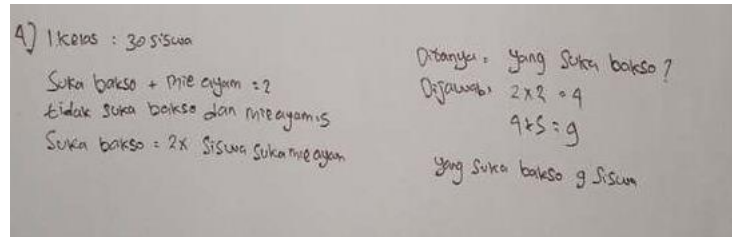 4] 1 kelas : 30 siswa
Suka bakso + mie ayam : 2
tidak suka bakso dan mie ayam : 5
Suka bakso = 2x siswa suka mie ayam
Ditanya : yang suka bakso ?
Dijawab : 2 x 2 = 4
4 + 5 = 9
yang suka bakso 9 siswa